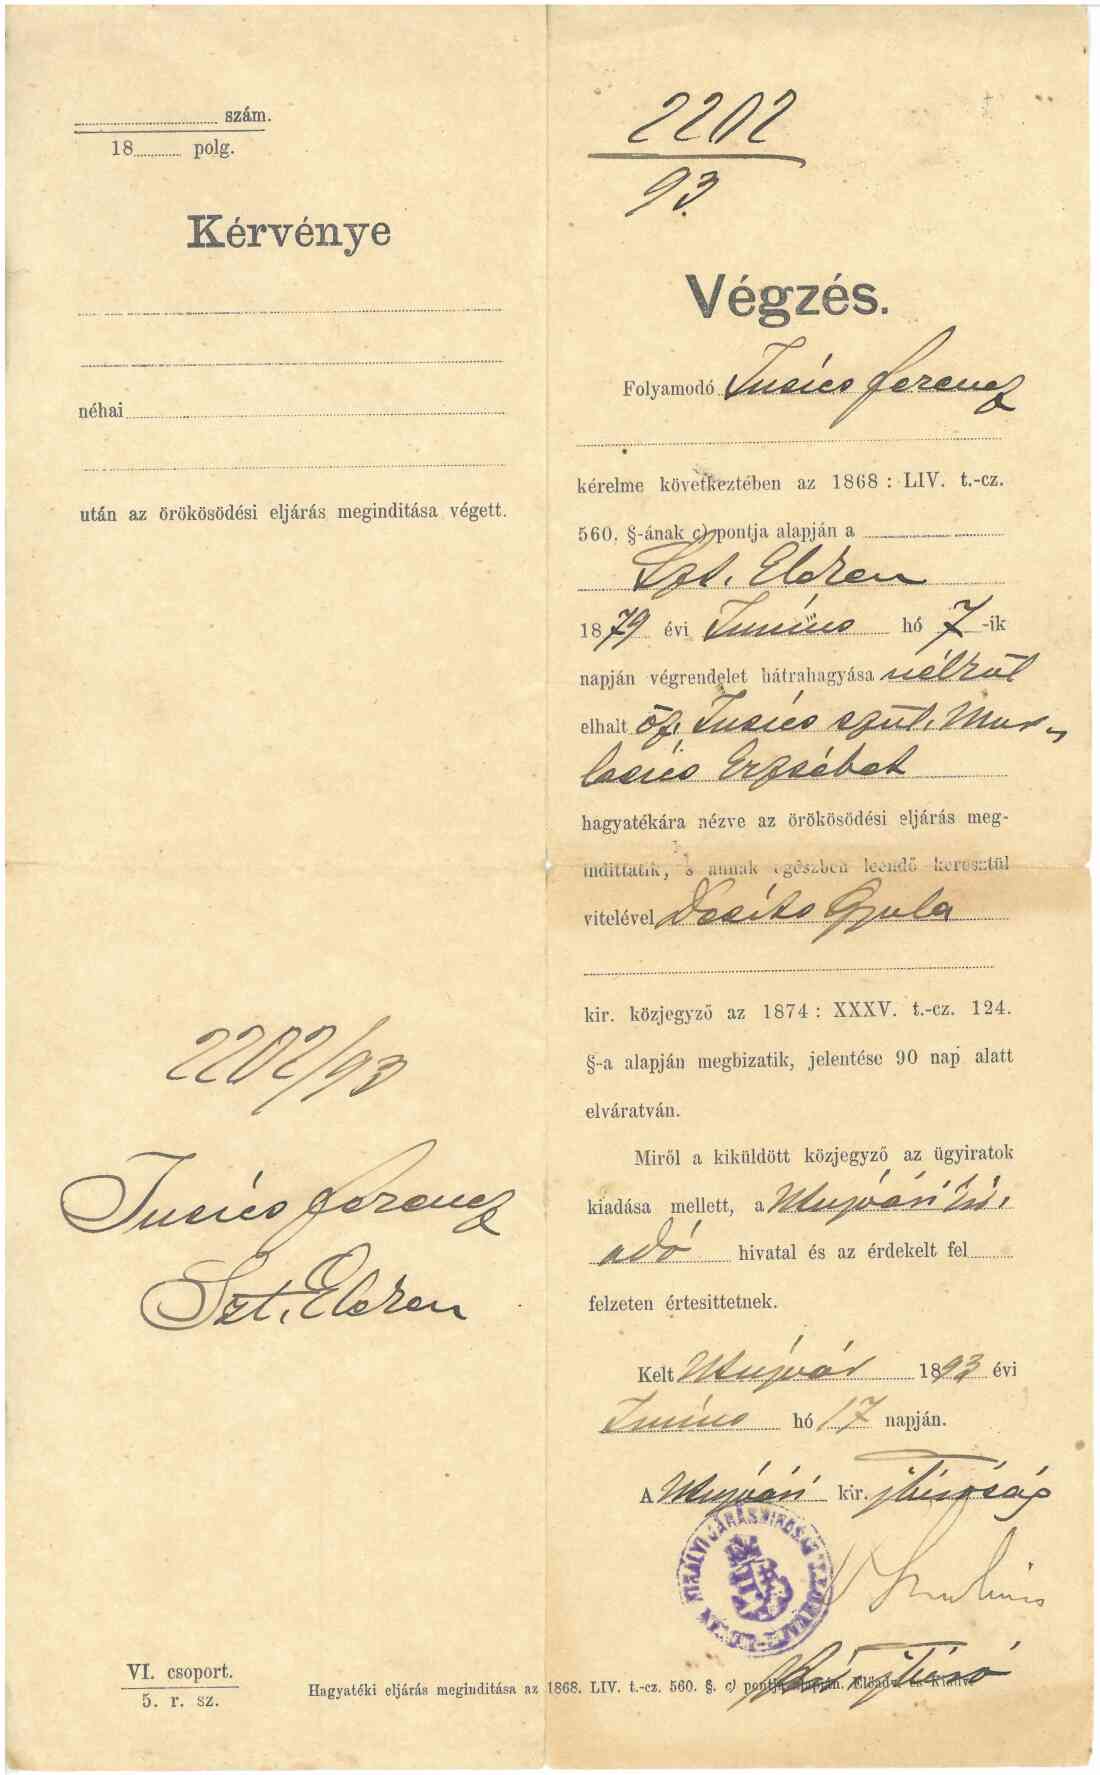 szám.
18 polg.
Kérvénye
néhai
után az örökösödési eljárás meginditása végett.
2202/93
Tusics Ferencz
Szt. Elek
VI. csoport.
5. r. sz.
2202
93.
Végzés.
Folyamodó Tusics Ferencz
kérelme következtében az 1868 : LIV. t.-cz.
560. §-ának c) pontja alapján a
Szt.
1879 évi Junius hó 7-ik
napján végrendelet hátrahagyása nélkül
elhalt öz. Tusics szül. Mur-
lasics Erzsébet
hagyatékára nézve az örökösödési eljárás meg-
indittatik, s annak egészben leendő keresztül
vitelével Gyula
kir. közjegyző az 1874 : XXXV. t.-cz. 124.
§-a alapján megbizatik, jelentése 90 nap alatt
elváratván.
Miről a kiküldött közjegyző az ügyiratok
kiadása mellett, a
adó hivatal és az érdekelt fel
felzeten értesittetnek.
Kelt 1893 évi
Junius hó 17 napján.
A kir. jbiróság
KIRÁLYI JÁRÁSBIRÓSÁG
kir. jbiró
Hagyatéki eljárás meginditása az 1868. LIV. t.-cz. 560. §. c) pontja alapján. Előadv. és kiadv.